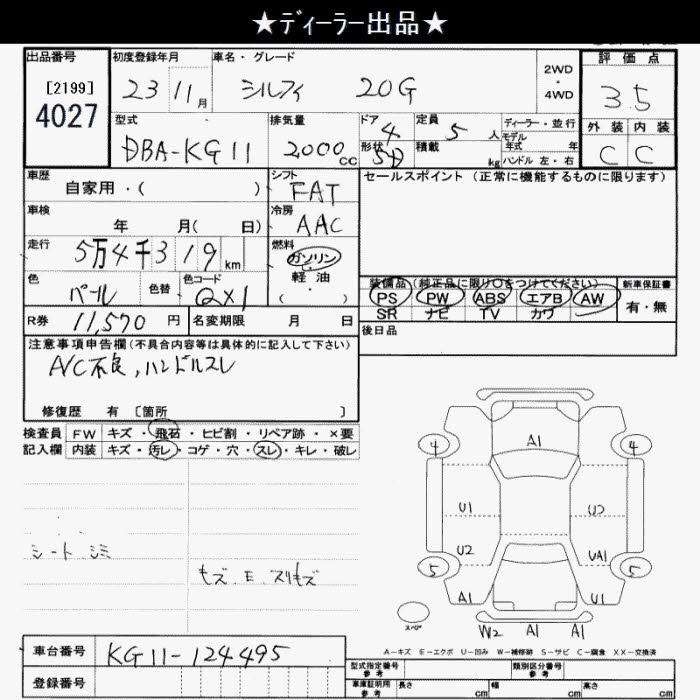 ★ディーラー出品★
出品番号
[2199]
4027
初度登録年月
23 11月
車名・グレード
シルフィ 20G
2WD
・
4WD
評価点
3.5
外装 内装
C C
型式
DBA-KG11
排気量
2000cc
ドア 4
形状 SD
定員 5人
積載 kg
ディーラー・並行
モデル
年式 年
ハンドル 左・右
車歴
自家用・( )
シフト
FAT
セールスポイント(正常に機能するものに限ります)
車検
年 月( 日)
冷房
AAC
走行
5万4千319km
燃料
ガソリン
・
軽油
( )
色
パール
色替
色コード
QX1
装備品(純正品に限り○をつけてください)
PS PW ABS エアB AW
SR ナビ TV カワ
新車保証書
有・無
R券 11,570円
名変期限 月 日
後日品
注意事項申告欄(不具合内容等は具体的に記入して下さい)
A/C不良,ハンドルスレ
修復歴 有 [箇所 ]
検査員
記入欄
FW キズ・飛石・ヒビ割・リペア跡・×要
内装 キズ・汚レ・コゲ・穴・スレ・キレ・破レ
シートシミ
モズ、E、スリキズ
4 A1 4
A1
U1 U2
U2 UA1
5 5
A1 A1 U1
スペア
W2 A1 A1
A-キズ E-エクボ U-凹み W-補修跡 S-サビ C-腐食 XX-交換済
車台番号 KG11-124495
登録番号
型式指定番号
参考
類別区分番号
参考
車庫証明用
参考
長さ cm 幅 cm 高さ cm